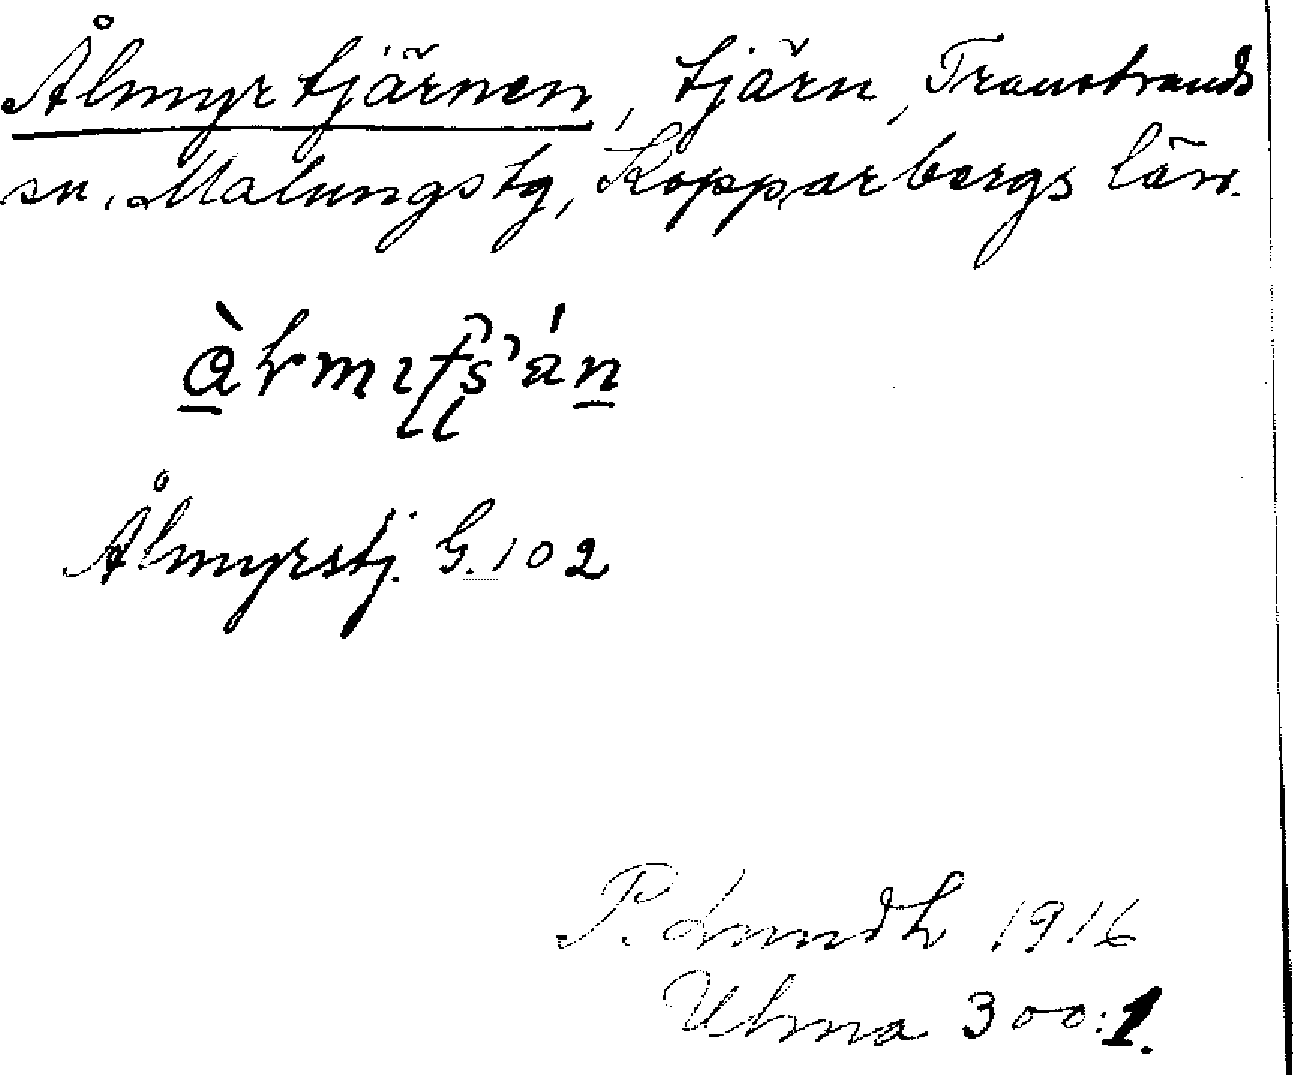 Ålmyrtjärnen, tjärn, Transtrands
sn. Malungs tg, Kopparbergs län.
Ålmyrstj. G. 102
P. Lundh 1916
Ulma 300:1.